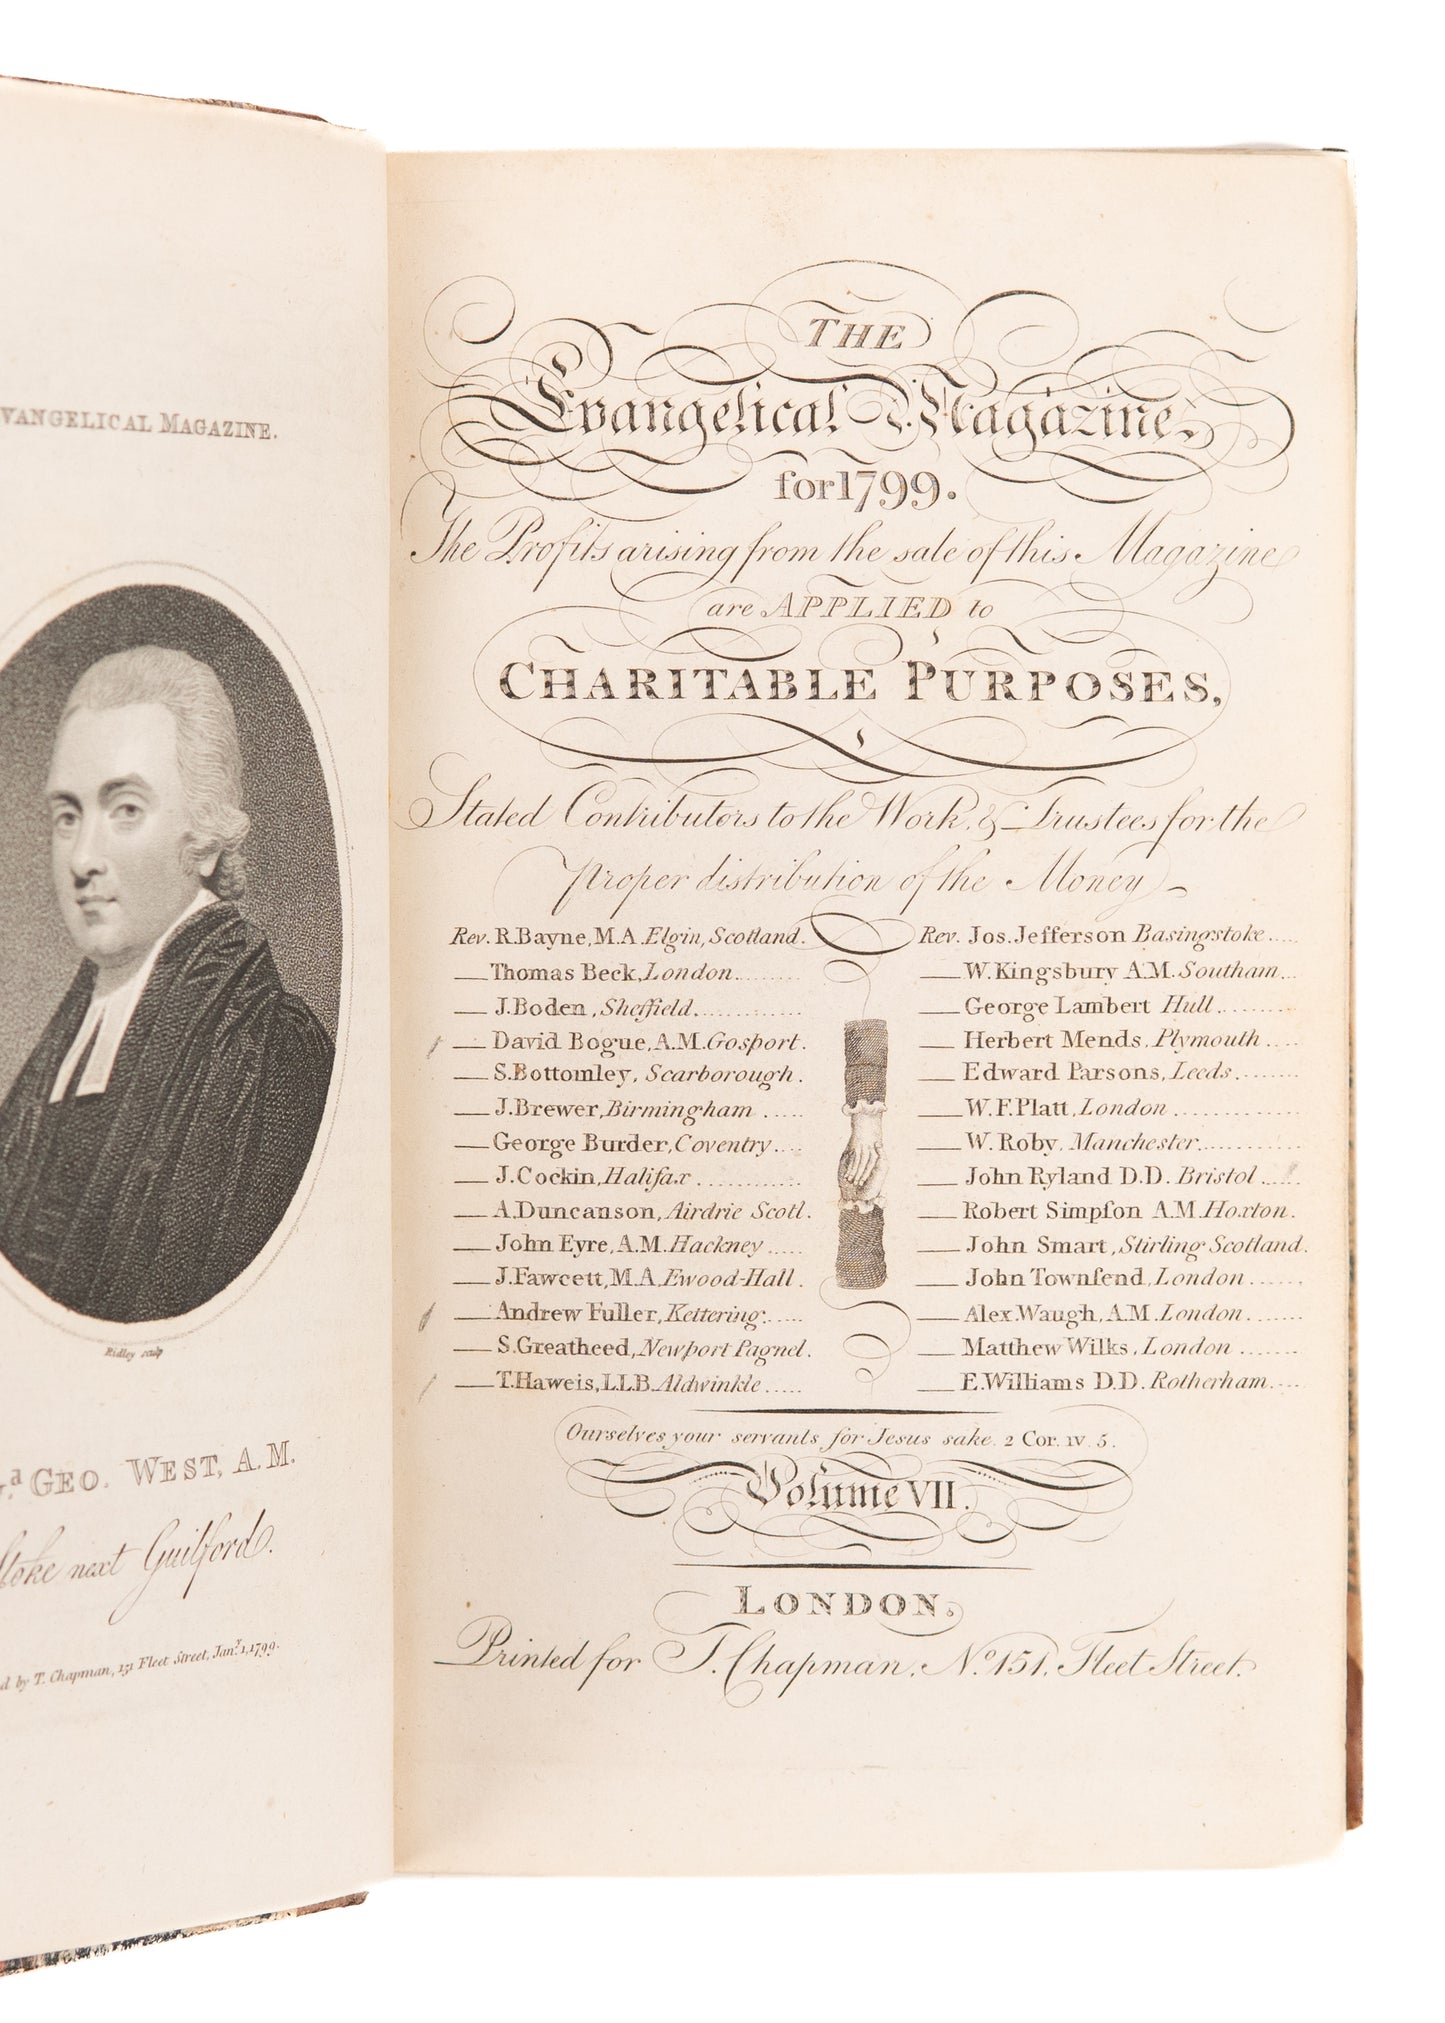 VANGELICAL MAGAZINE.
Ridley sculp
GEO. WEST, A.M.
Stoke next Guilford.
by T. Chapman, 151 Fleet Street, Jan.y 1, 1799.
THE
Evangelical Magazine,
for 1799.
The Profits arising from the sale of this Magazine
are APPLIED to
CHARITABLE PURPOSES,
Stated Contributors to the Work, & Trustees for the
proper distribution of the Money
Rev. R. Bayne, M.A. Elgin, Scotland.
— Thomas Beck, London........
— J. Boden, Sheffield.............
— David Bogue, A.M. Gosport.
— S. Bottomley, Scarborough.
— J. Brewer, Birmingham .....
— George Burder, Coventry....
— J. Cockin, Halifax ............
— A. Duncanson, Airdrie Scotl.
— John Eyre, A.M. Hackney .....
— J. Fawcett, M.A. Ewood-Hall.
— Andrew Fuller, Kettering.....
— S. Greatheed, Newport Pagnel.
— T. Haweis, LLB. Aldwinkle.....
Rev. Jos. Jefferson Basingstoke.....
— W. Kingsbury A.M. Southam...
— George Lambert Hull..........
— Herbert Mends, Plymouth ....
— Edward Parsons, Leeds........
— W.F. Platt, London ............
— W. Roby, Manchester...........
— John Ryland D.D. Bristol .....
— Robert Simpſon A.M. Hoxton.
— John Smart, Stirling Scotland.
— John Townſend, London ......
— Alex. Waugh, A.M. London .......
— Matthew Wilks, London .......
— E. Williams D.D. Rotherham....
Ourselves your servants for Jesus sake. 2 Cor. IV. 5.
Volume VII.
LONDON,
Printed for T. Chapman, No. 151, Fleet Street.